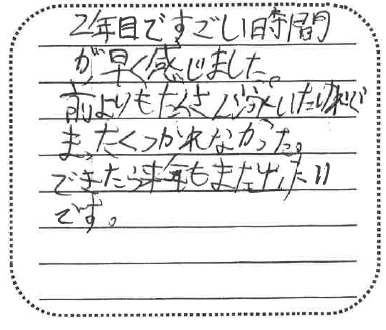 2年目ですごい時間
が早く感じました。
前よりもたくさん泳いだけれど
まったくつかれなかった。
できたら来年もまた出たい
です。